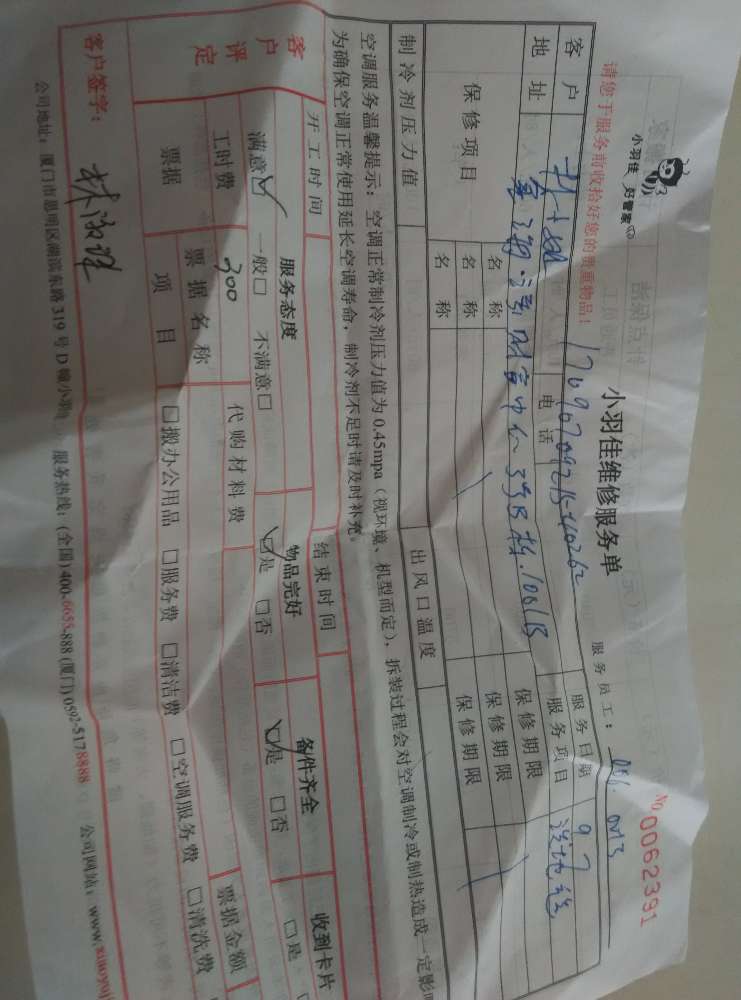 小羽佳 好管家
请您于服务前收拾好您的贵重物品！
小羽佳维修服务单
No 0062391
服务员工：
客户
电话
服务日期 9.7
地址
服务项目 洗地毯
保修项目
名称
保修期限
名称
保修期限
名称
保修期限
制冷剂压力值
出风口温度
空调服务温馨提示：空调正常制冷剂压力值为0.45mpa（视环境、机型而定），拆装过程会对空调制冷或制热造成一定影响
为确保空调正常使用延长空调寿命，制冷剂不足时请及时补充。
开工时间
结束时间
客户评定
服务态度
物品完好
备件齐全
收到卡片
满意☑ 一般□ 不满意□
☑是 □否
☑是 □否
□是
工时费 300
代购材料费
票据
票据名称
票据金额
项目
□搬办公用品 □服务费 □清洁费 □空调服务费 □清洗费
客户签字：
公司地址：厦门市思明区湖滨东路319号D幢小羽 服务热线：(全国)400-6655-888 (厦门)0592-5178888 公司网站：www.xiaoyu